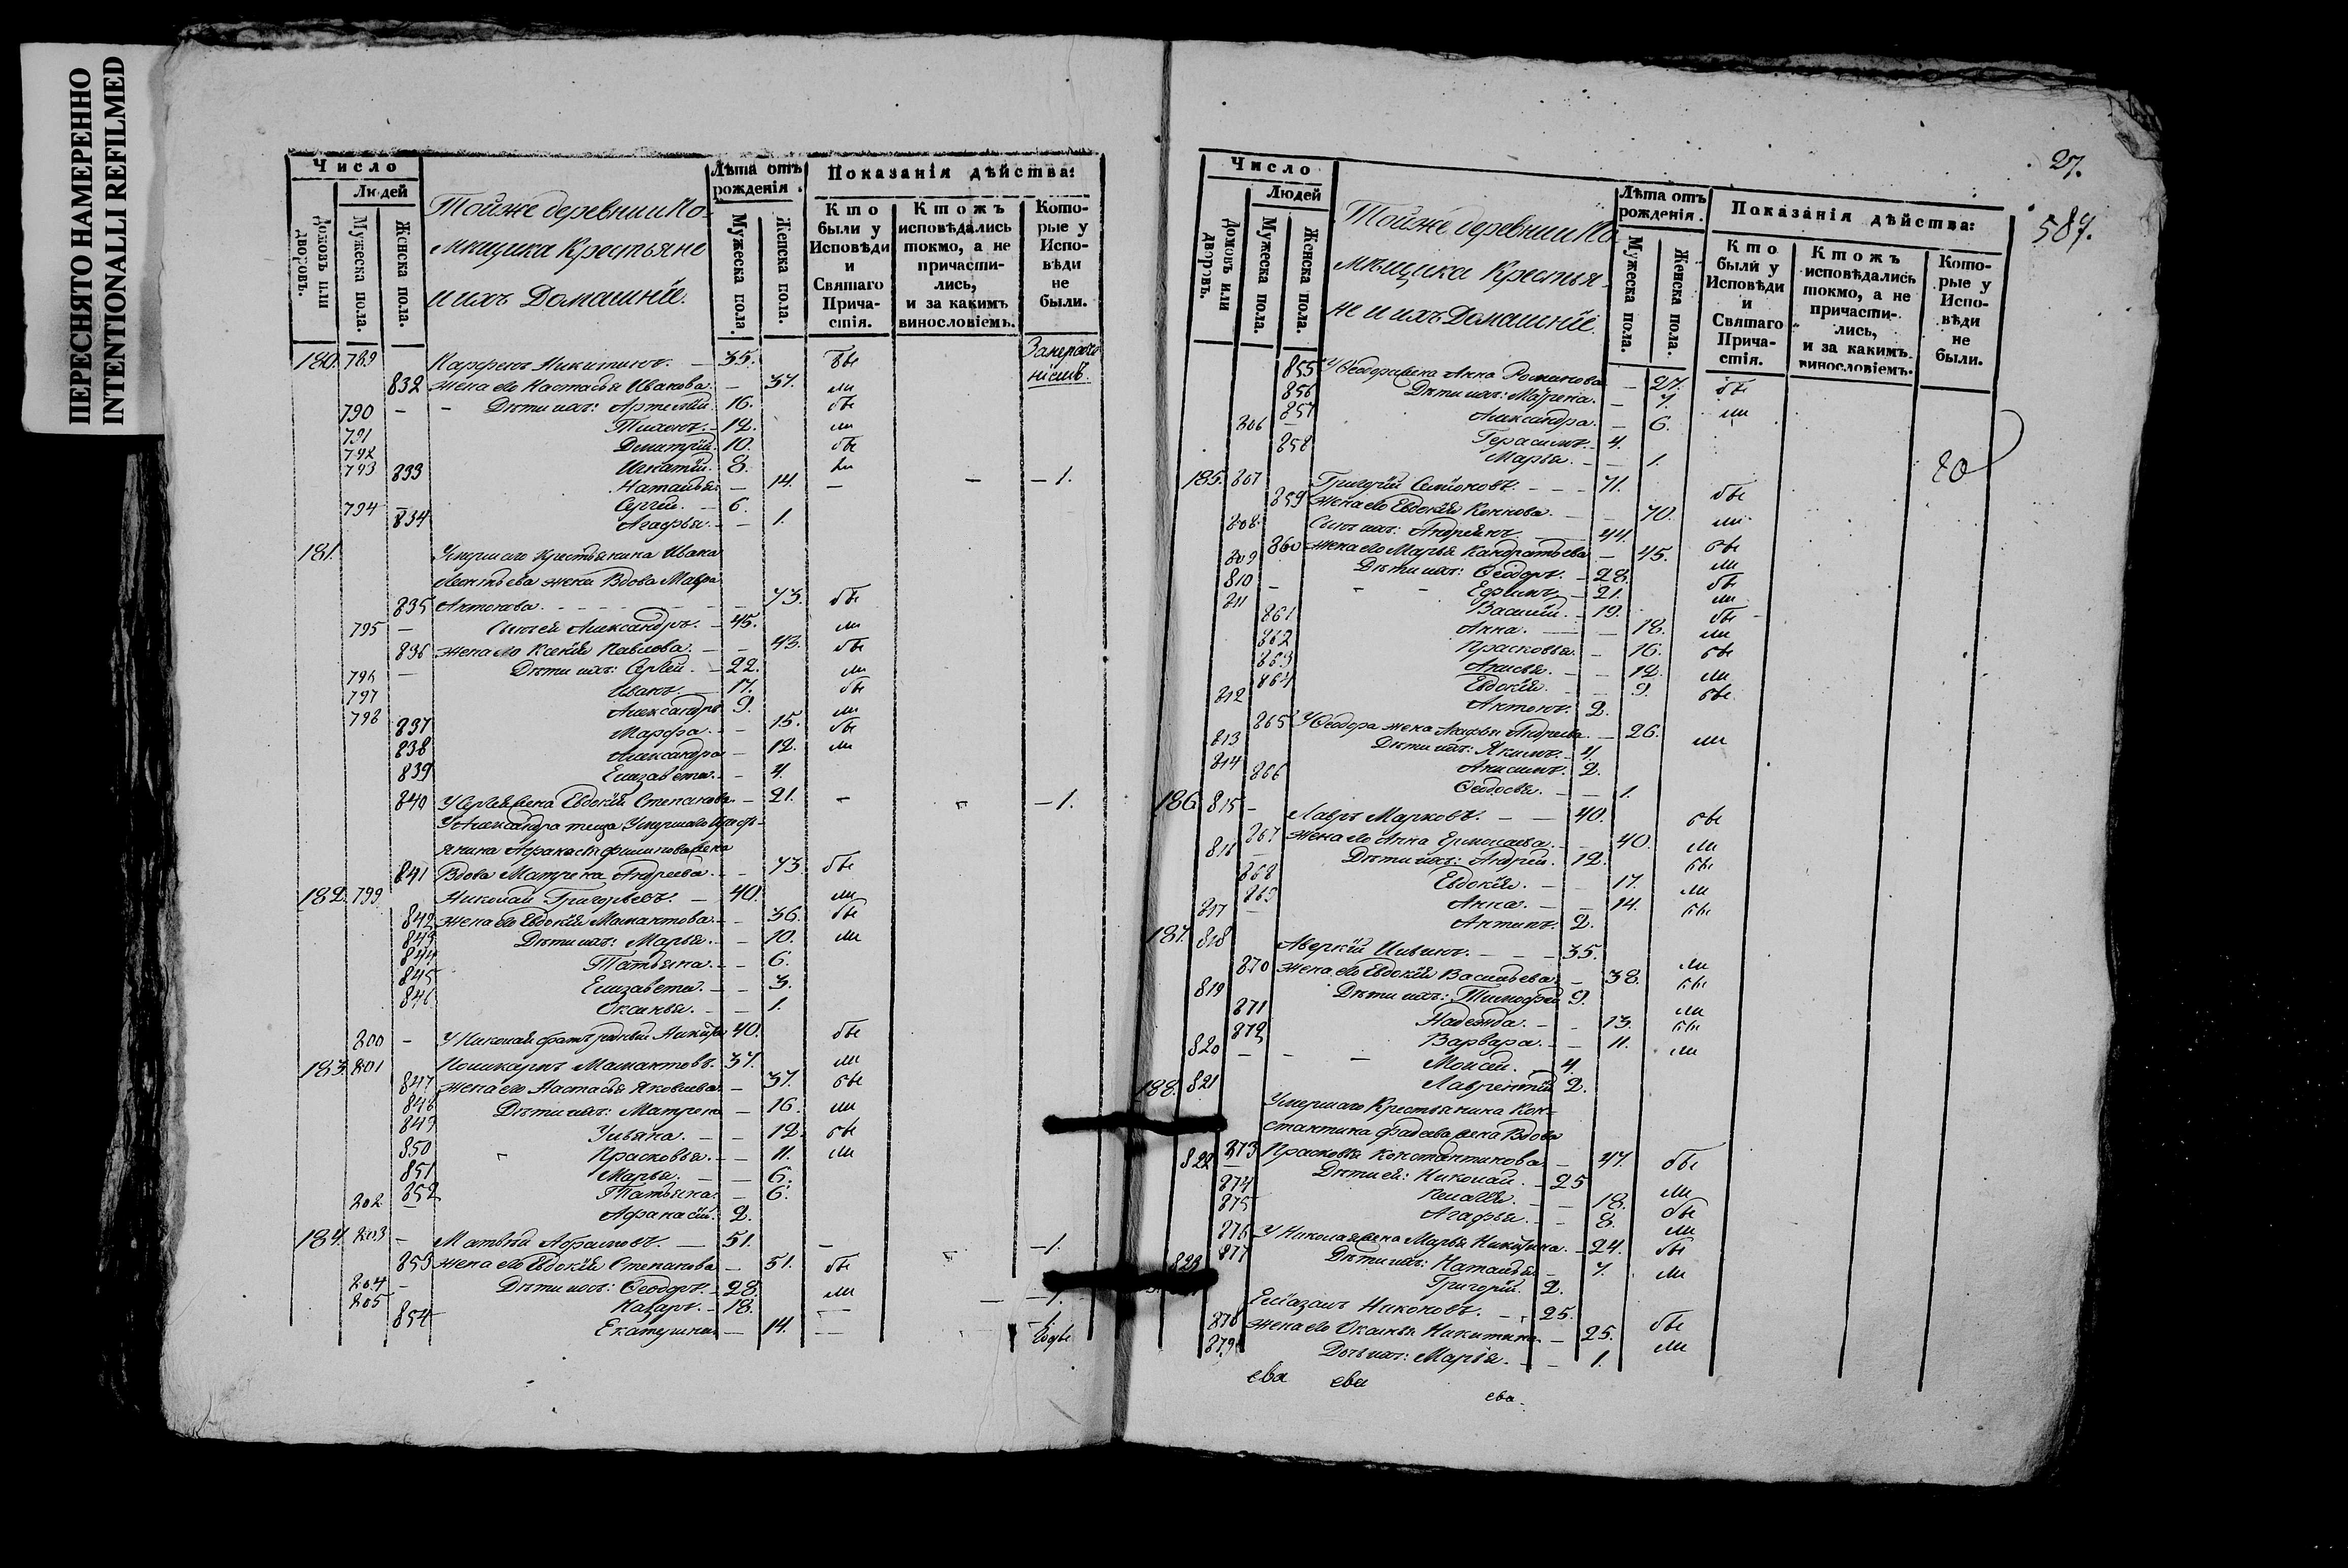 ПЕРЕСНЯТО НАМЕРЕННО
INTENTIONALLI REFILMED
Число
Людей
Лѣта отъ рожденія.
Показанія дѣйства:
Домовъ или дворовъ.
Мужеска пола.
Женска пола.
Тойже деревни По-
мищика Крестьяне
и ихъ Домашніе.
Мужеска пола
Женска пола.
Кто были у Исповѣди и Святаго Прича-стія.
Ктожъ исповѣдались токмо, а не причасти-лись, и за какимъ винословіемъ.
Кото-рые у Испо-вѣди не были.
180. 789 Никитинъ. — 35. бы
832 жена его Настасья Иванова. — 37. ли
790 — Дѣти ихъ: Артемій. 16. бы
791 Тихонъ. — 12. ли
792 Димитрій. 10. бы
793 Игнатій. 8. ли
833 Наталья — 14. — — — 1.
794 Сергей. — 6.
834 Агафья. — 1.
181. Умершаго Крестьянина Ивана
жена Вдова Мавра
835 Антонова. — 73. бы
795 — Сынъ ей Александръ. — 45. ли
836 жена его Ксенія Павлова. — 43. бы
796 — Дѣти ихъ: Сергей. — 22. ли
797 Иванъ. — 17. бы
798 Александръ 9. ли
837 Марфа. — 15. бы
838 Александра — 12. ли
839 Елизавета. — 4.
840 У Сергея жена Евдокія Степанова — 21. — — — 1.
У Александра теща Умершаго Кресть-
янина Афанасія Филипова жена
841 Вдова Матрена Андреева. — 73. бы
182. 799 Николай Григорьевъ. — 40. ли
842 жена его Евдокія Мамантова. — 36. бы
843 Дѣти ихъ: Марья. — 10. ли
844 Татьяна. — 6.
845 Елизавета. — 3.
846 Оксинья. — 1.
800 — У Николая братъ родный Никифоръ 40. бы
183. 801 Поликарпъ Мамантовъ. 37. ли
847 жена его Настасья Яковлева — 37. бы
848 Дѣти ихъ: Матрена — 16. ли
849 Ульяна. — 12. бы
850 Прасковья. — 11. ли
851 Марья. — 6.
852 Татьяна. — 6.
802 Афанасій. 2.
184. 803 — Матвѣй Абрамовъ. — 51. — — 1.
853 жена его Евдокія Степанова — 51. бы
804 — Дѣти ихъ: Ѳеодоръ. — 28. ли
805 Назаръ. — 18. — — 1.
854 Екатерина — 14. — — 1.
27.
587.
Число
Людей
Лѣта отъ рожденія.
Показанія дѣйства:
Домовъ или дворовъ.
Мужеска пола.
Женска пола.
Тойже деревни По-
мѣщика Крестья-
не и ихъ Домашніе.
Мужеска пола.
Женска пола.
Кто были у Исповѣди и Святаго Прича-стія.
Ктожъ исповѣдались токмо, а не причасти-лись, и за какимъ винословіемъ.
Кото-рые у Испо-вѣди не были.
855 У Ѳеодора жена Анна Романова — 27. бы
856 Дѣти ихъ: Матрена. — 7. ли
857 Александра. — 6.
806 Герасимъ. — 4.
858 Марья. — 1.
185. 807 Григорій Семіоновъ. — 71. бы
859 жена его Евдокія — 70. ли
808. Сынъ ихъ: — 44. бы
860 жена его Марья Кандратьева — 45. ли
809 Дѣти ихъ: Ѳеодоръ. — 28. бы
810 — Ефимъ — 21. ли
811 Василій. — 19. бы
861 Анна. — 18. ли
862 Прасковья. — 16. бы
863 Анисья. — 12. ли
864 Евдокія. — 9. бы
812 Антонъ. 2.
865 У Ѳеодора жена Агафья Андреева. — 26. ли
813 Дѣти ихъ: Якимъ. — 4.
814 Анисимъ. 2.
866 Ѳеодосья. — 1.
186 815 — Лавръ Марковъ. — 40. бы
867 жена его Анна Ермолаева. — 40. ли
816 Дѣти ихъ: Андрей. 12. бы
868 Евдокія. — 17. ли
869 Анна. — 14. бы
817 — Антипъ. 2.
187. 818 Аверкій — 35. ли
870 жена его Евдокія Васильева — 38. бы
819 Дѣти ихъ: Тимофей 9. ли
871 Надежда. — 13. бы
872 Варвара. — 11. ли
820 — Моисей. — 4.
188. 821 Лаврентій 2.
Умершаго Крестьянина Кон-
стантина Фадеева жена Вдова
873 Прасковья Константинова — 47. бы
822 — Дѣти ей: Николай. — 25 ли
874 Пелагея. — 18. бы
875 Агафья. — 8. ли
876 У Николая жена Марья — 24. бы
877 Дѣти ихъ: Наталья — 7. ли
823 Григорій. 2.
Никоновъ. — 25. бы
878 жена его Оксинья Никитина — 25. ли
879 Дочь ихъ: Марія. — 1.
ева ева
ева